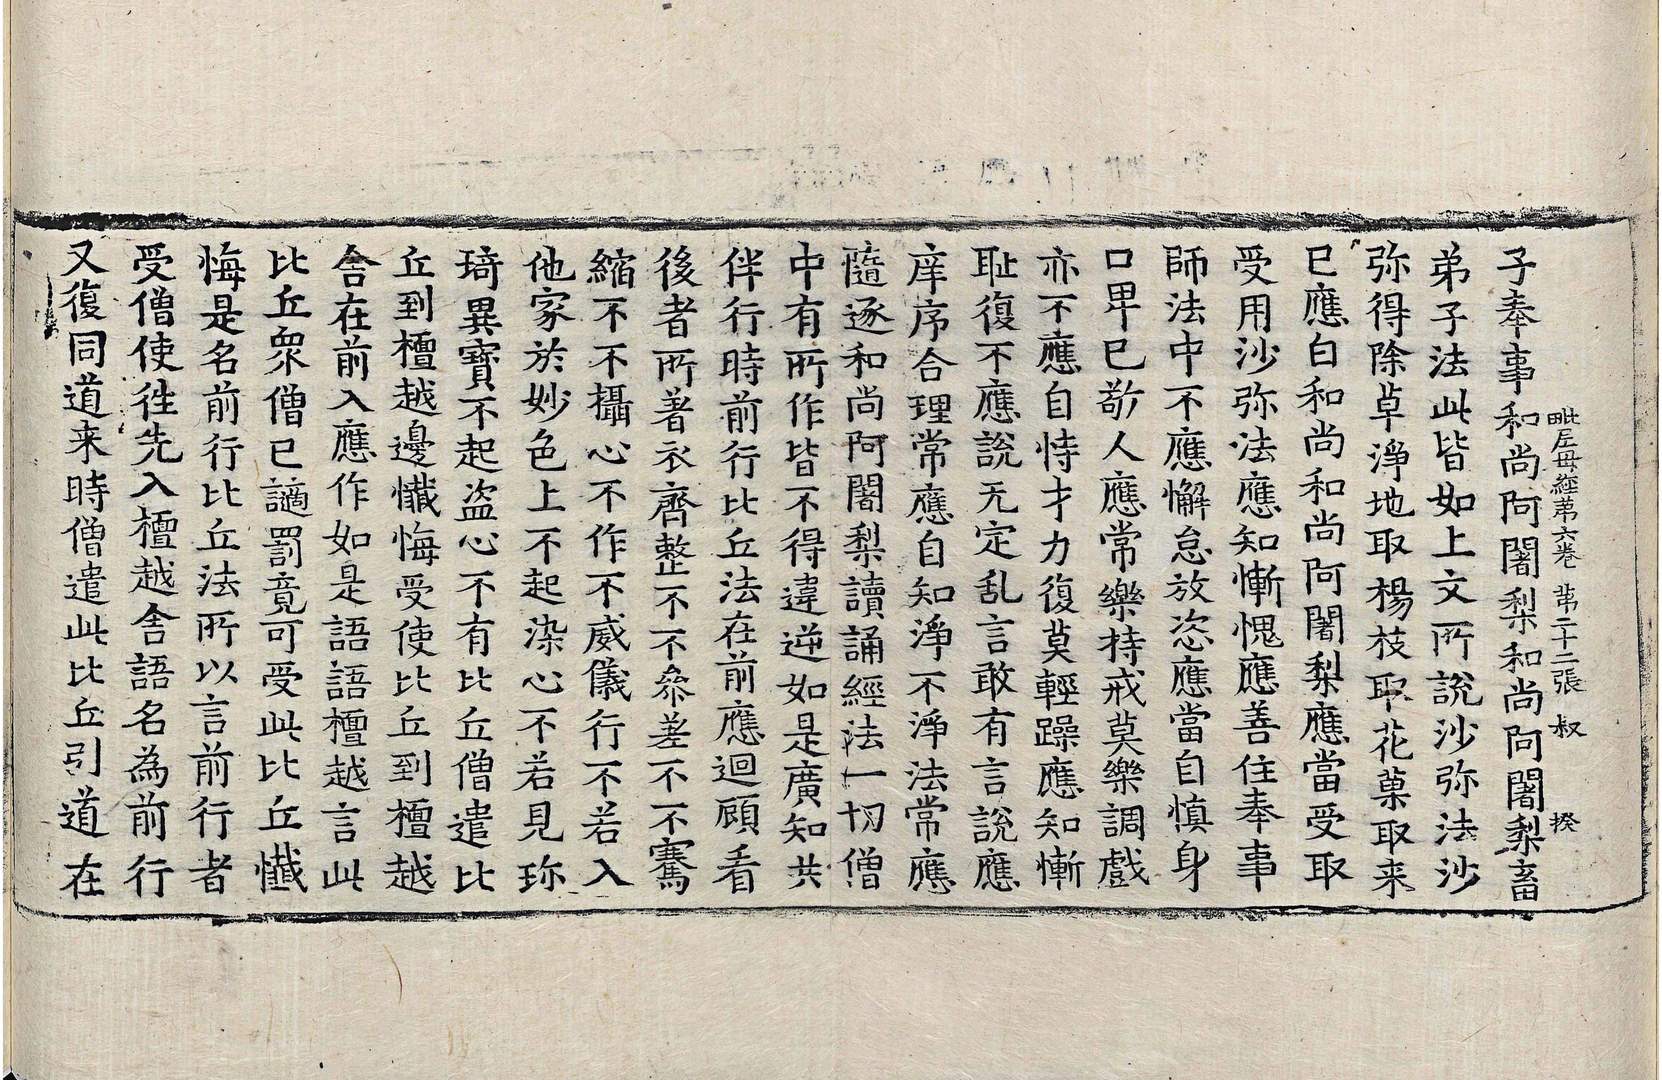 毗尼母經第六卷 第二十二張 叔 揆
子奉事和尚阿闍梨和尚阿闍梨畜
弟子法此皆如上文所說沙弥法沙
弥得除草淨地取楊枝取花菓取来
已應白和尚和尚阿闍梨應當受取
受用沙弥法應知慚愧應善住奉事
師法中不應懈怠放恣應當自慎身
口卑已敬人應常樂持戒莫樂調戲
亦不應自恃才力復莫輕躁應知慚
耻復不應說无定乱言敢有言說應
庠序合理常應自知淨不淨法常應
隨逐和尚阿闍梨讀誦經法一切僧
中有所作皆不得違逆如是廣知共
伴行時前行比丘法在前應迴顧看
後者所著衣齊整不不叅差不不騫
縮不不攝心不作不威儀行不若入
他家於妙色上不起染心不若見珎
琦異寶不起盗心不有比丘僧遣比
丘到檀越邊懺悔受使比丘到檀越
舎在前入應作如是語語檀越言此
比丘眾僧已讁罰竟可受此比丘懺
悔是名前行比丘法所以言前行者
受僧使徃先入檀越舎語名為前行
又復同道来時僧遣此比丘引道在